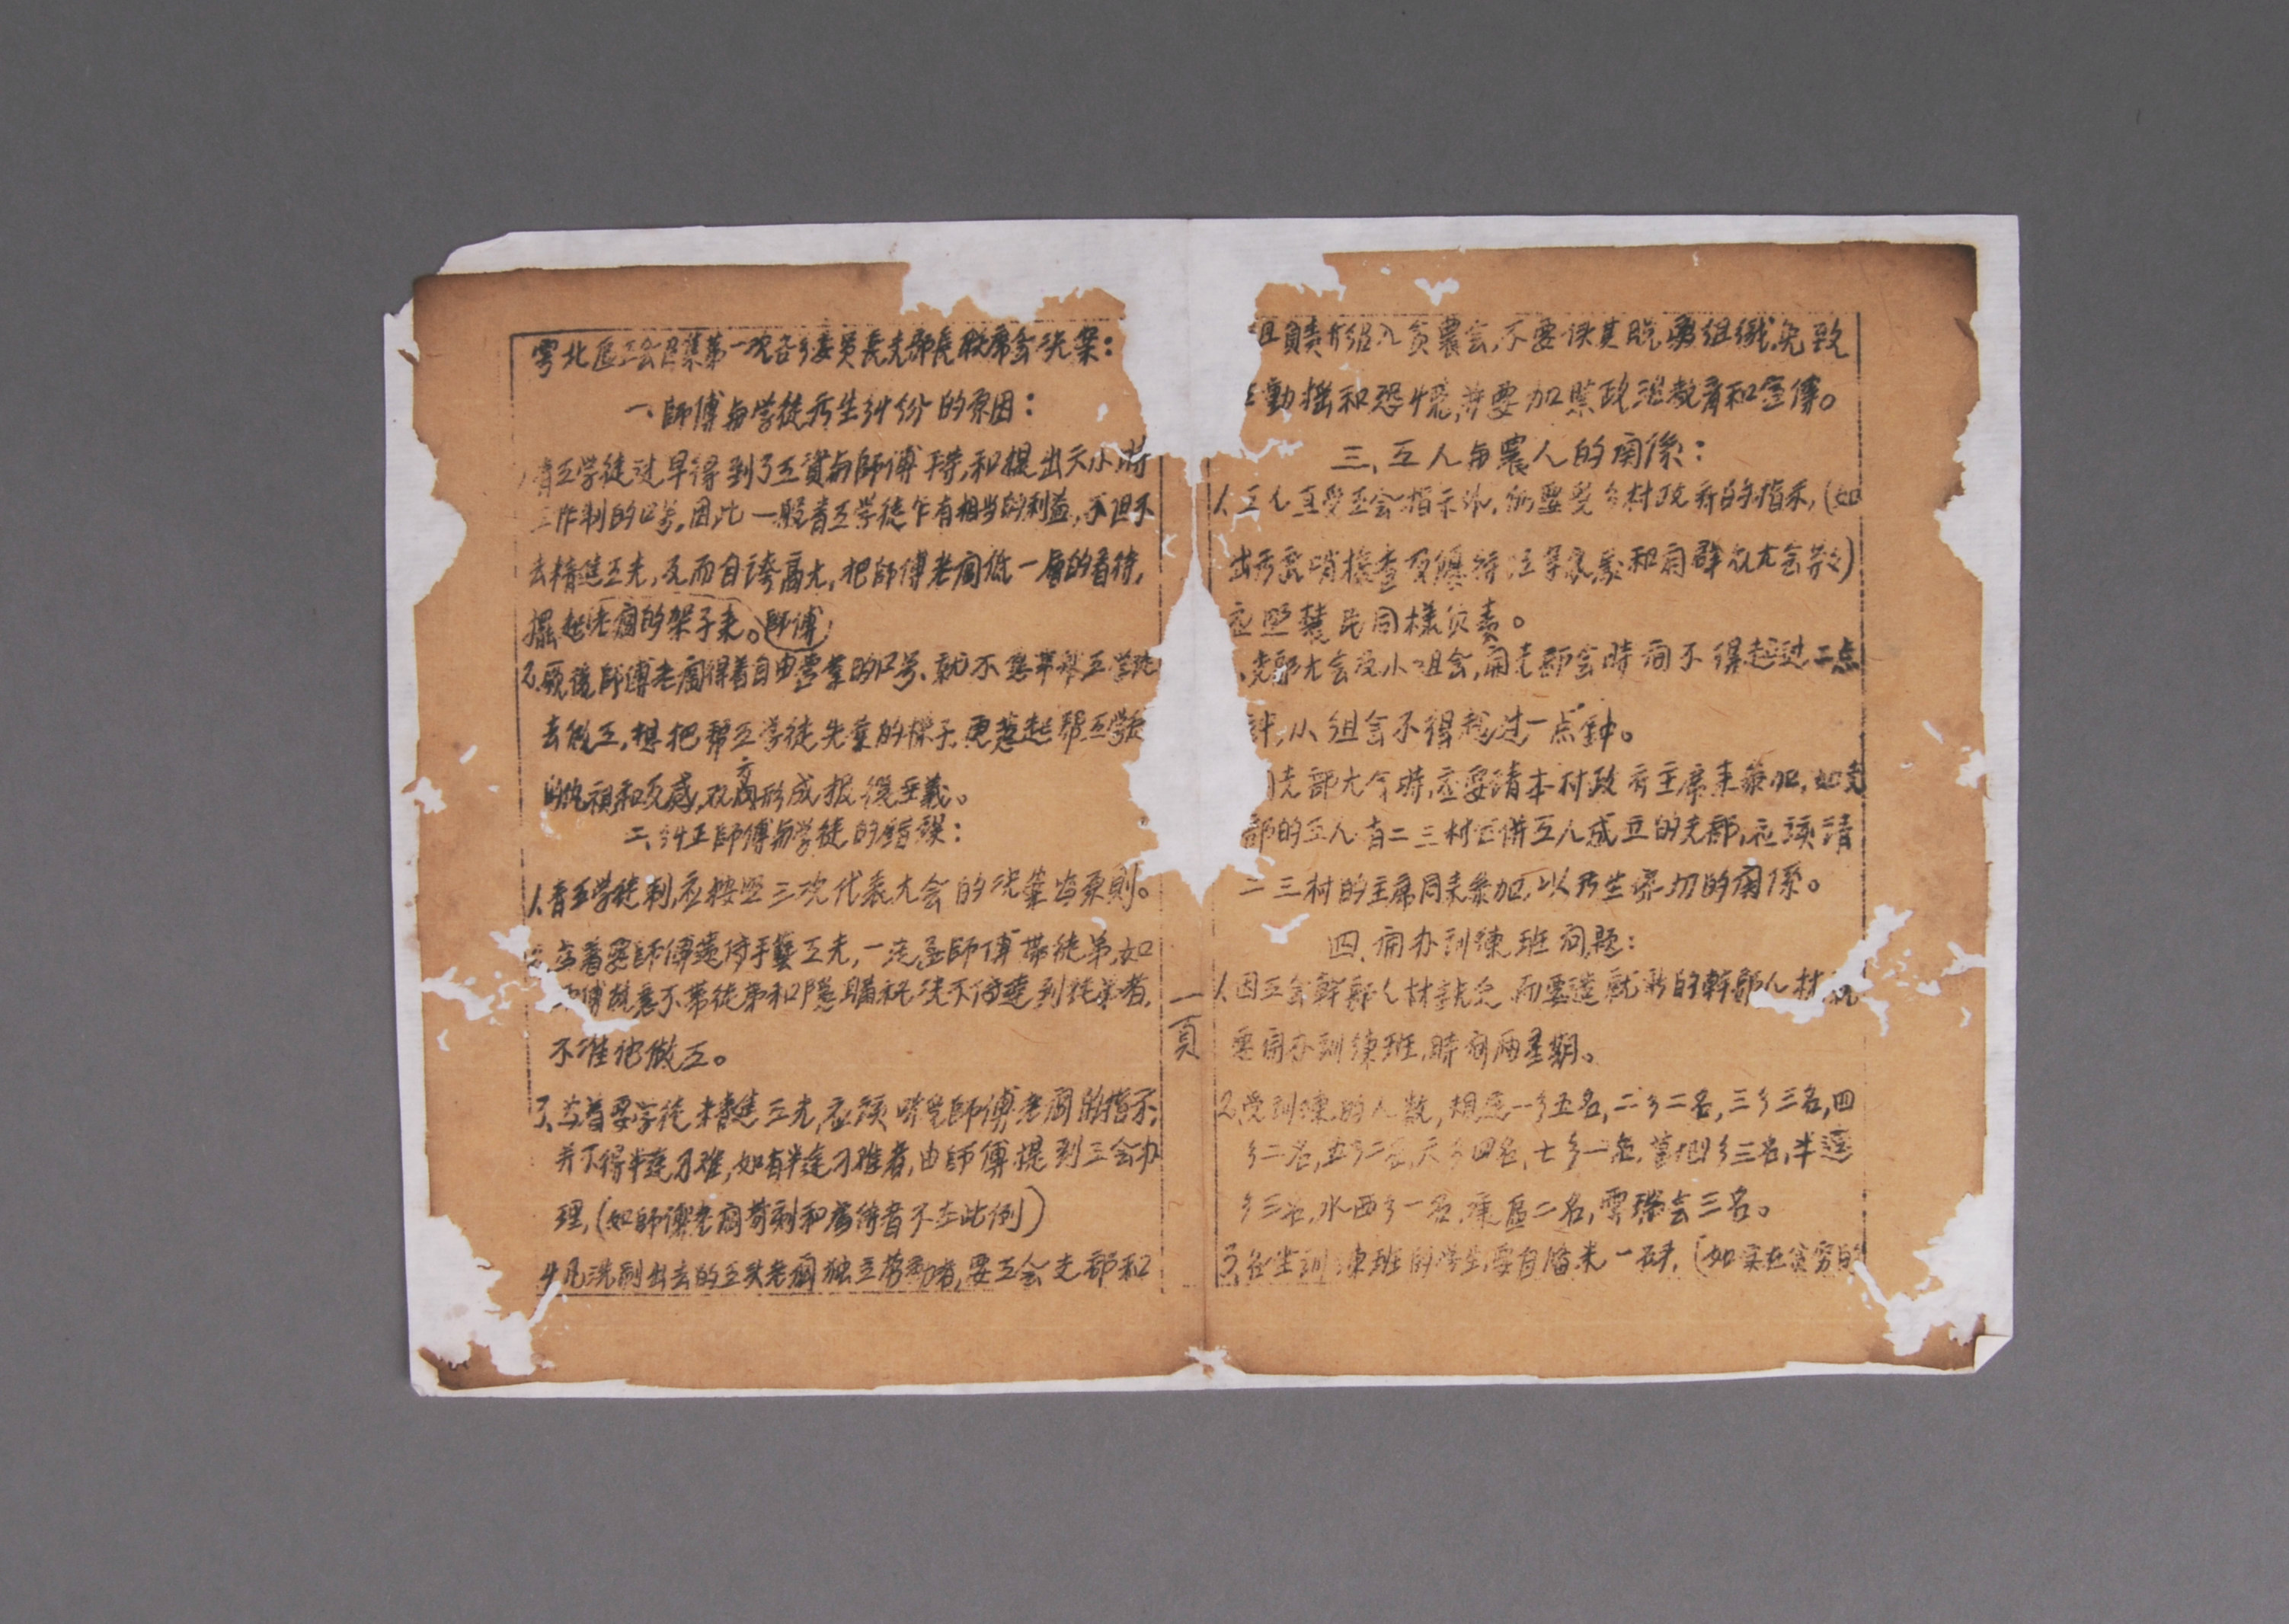 雩北區工会召集第一次各乡委員長支部長联席会决案：
一、師傅与学徒發生糾份的原因：
青工学徒过早得到了工資与師傅平等，和提出六小時
工作制的口号，因此一般青工学徒乍有相当的利益，不但不
去精進工夫，反而自誇高大，把師傅老闆低一層的看待，
擺起老闆的架子来。師傅
2、師傅老闆得着自由營業的口号，就不想帮工学徒
去做工，想把帮工学徒失業的樣子，更惹起帮工学徒
的仇視和反感，双方形成报復主義。
二、糾正師傅与学徒的錯誤：
1、青工学徒制，应按照三次代表大会的决案为原則。
師傅遺傳手藝工夫，一定要師傅帶徒弟，如
師傅故意不帶徒弟和隱瞞
不准他做工。
3、学徒精進工夫，应须听受師傅老闆的指示，
并不得半途刁难，如有半途刁难者，由師傅提到工会办
理，（如師傅老闆苛刻和虐待者不在此例）
4、凡洗刷出去的工头老闆独立劳动者，要工会支部和
一頁
組負責介紹入貧農会，不要使其脱离組織，免致
動搖和恐慌，并要加紧政治教育和宣傳。
三、工人与農人的関係：
1、工人直受工会指示外，仍要受乡村政府的指示，（如
出步哨檢查及優待紅軍家屬和開群众大会等）
应照農民同樣負責。
、支部大会及小組会，開支部会時间不得超过二点
鈡，小組会不得超过一点鈡。
支部大会時，应要請本村政府主席来参加，如支
部的工人有二三村合併工人成立的支部，应须請
二三村的主席同来参加，以發生密切的関係。
四、開办訓練班问题：
1、因工会幹部人材缺乏，而要造就新的幹部人材，
要開办訓練班，時间兩星期。
2、受訓練的人数，規定一乡五名，二乡二名，三乡三名，四
乡二名，五乡二名，六乡四名，七乡一名，乡三名，半逕
乡三名，水西乡一名，東區二名，雩瑞会三名。
3、各坐訓練班的学生，要自備米一斗，（如实在貧穷的